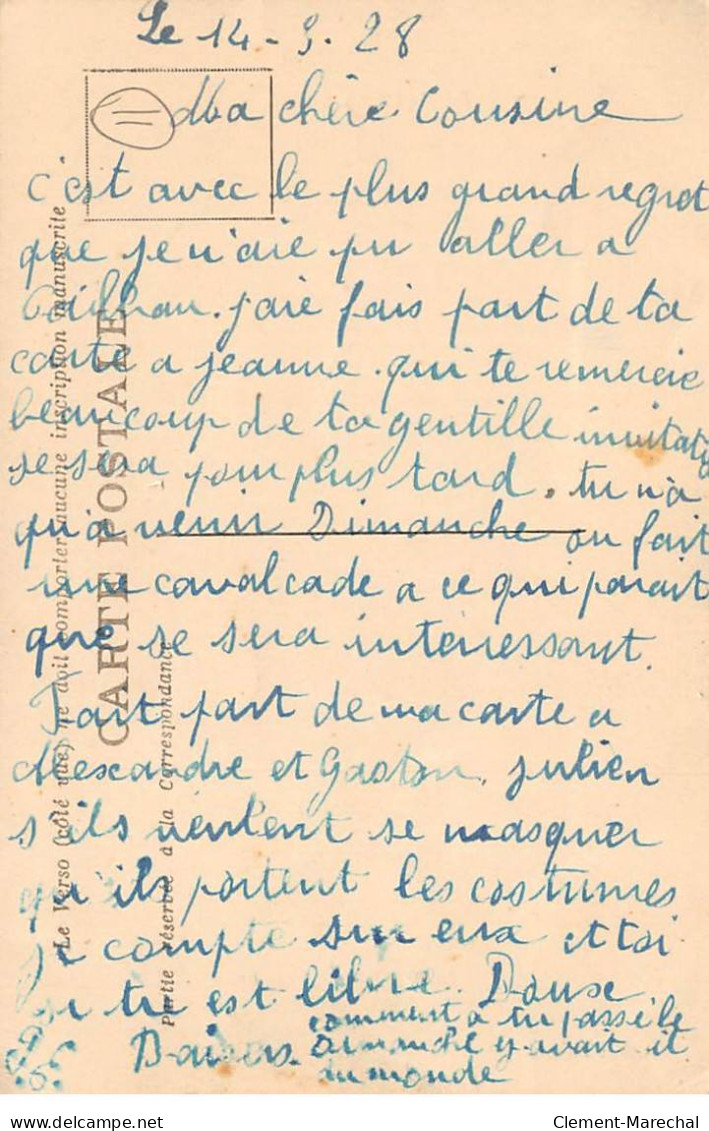 Le 14-3.28
Ma chère Cousine
c'est avec le plus grand regrot
que je n'aie pu aller a
Pailhan. jaie fais part de ta
carte a jeanne. qui te remercie
beaucoup de ta gentille invitati
se sera pour plus tard. tu n'a
qu'a venir Dimanche on fait
une cavalcade a ce qui parait
que se sera interressant.
Fait part de ma carte a
Alexandre et Gaston. julien
s'ils veulent se masquer
qu'ils portent les costumes
je compte sur eux et toi
si tu est libre. Douse
Baisers. comment a tu passé le
dimanche y avait il
du monde
CARTE POSTALE
Le Verso (côté vue) ne doit comporter aucune inscription manuscrite
Partie réservée à la Correspondance
delcampe.net
Clement-Marechal